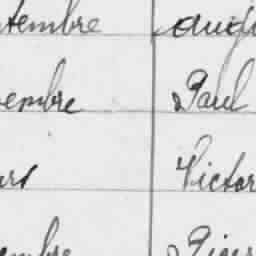 tembre augu
embre Paul
ars Victor
embre Pier